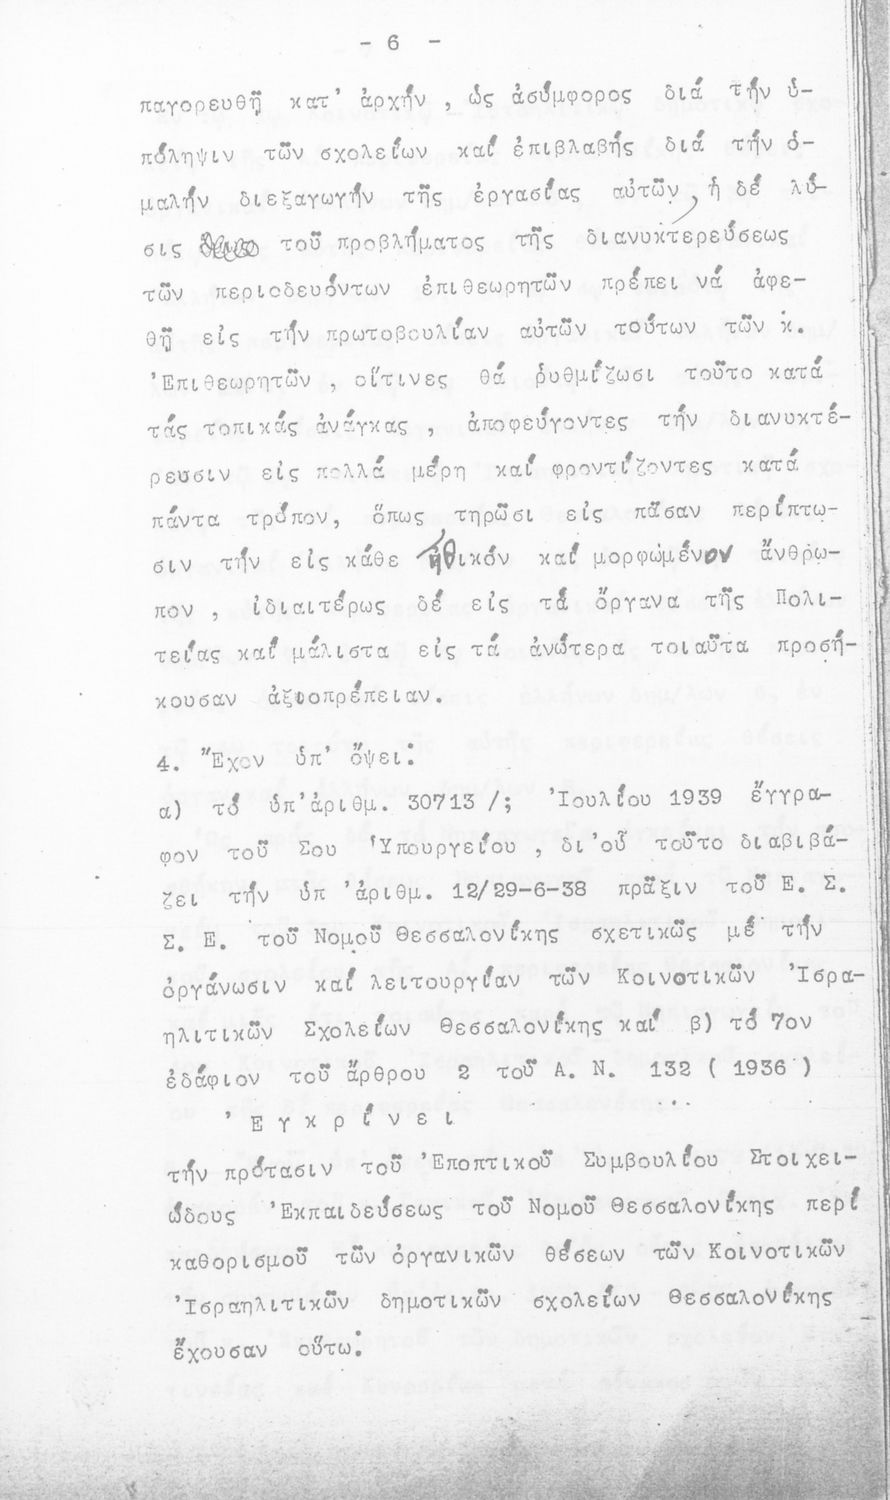 - 6 -
παγορευθῇ κατ' ἀρχήν , ὡς ἀσύμφορος διά τήν ὑ-
πόληψιν τῶν σχολείων καί ἐπιβλαβής διά τήν ὁ-
μαλήν διεξαγωγήν τῆς ἐργασίας αὐτῶν, ἡ δέ λύ-
σις τοῦ προβλήματος τῆς διανυκτερεύσεως
τῶν περιοδευόντων ἐπιθεωρητῶν πρέπει νά ἀφε-
θῇ εἰς τήν πρωτοβουλίαν αὐτῶν τούτων τῶν κ.
'Επιθεωρητῶν , οἵτινες θά ῥυθμίζωσι τοῦτο κατά
τάς τοπικάς ἀνάγκας , ἀποφεύγοντες τήν διανυκτέ-
ρευσιν εἰς πολλά μέρη καί φροντίζοντες κατά
πάντα τρόπον, ὅπως τηρῶσι εἰς πᾶσαν περίπτω-
σιν τήν εἰς κάθε ἠθικόν καί μορφωμένον ἄνθρω-
πον , ἰδιαιτέρως δέ εἰς τά ὄργανα τῆς Πολι-
τείας καί μάλιστα εἰς τά ἀνώτερα τοιαῦτα προσή-
κουσαν ἀξιοπρέπειαν.
4. Ἔχον ὑπ' ὄψει:
α) τό ὑπ'ἀριθμ. 30713 /; 'Ιουλίου 1939 ἔγγρα-
φον τοῦ Σου Ὑπουργείου , δι'οὗ τοῦτο διαβιβά-
ζει τήν ὑπ 'ἀριθμ. 12/29-6-38 πρᾶξιν τοῦ Ε. Σ.
Σ. Ε. τοῦ Νομοῦ Θεσσαλονίκης σχετικῶς μέ τήν
ὀργάνωσιν καί λειτουργίαν τῶν Κοινοτικῶν 'Ισρα-
ηλιτικῶν Σχολείων Θεσσαλονίκης καί β) τό 7ον
ἐδάφιον τοῦ ἄρθρου 2 τοῦ Α. Ν. 132 ( 1936 )
'Ε γ κ ρ ί ν ε ι
τήν πρότασιν τοῦ 'Εποπτικοῦ Συμβουλίου Στοιχει-
ώδους 'Εκπαιδεύσεως τοῦ Νομοῦ Θεσσαλονίκης περί
καθορισμοῦ τῶν ὀργανικῶν θέσεων τῶν Κοινοτικῶν
'Ισραηλιτικῶν δημοτικῶν σχολείων Θεσσαλονίκης
ἔχουσαν οὕτω: